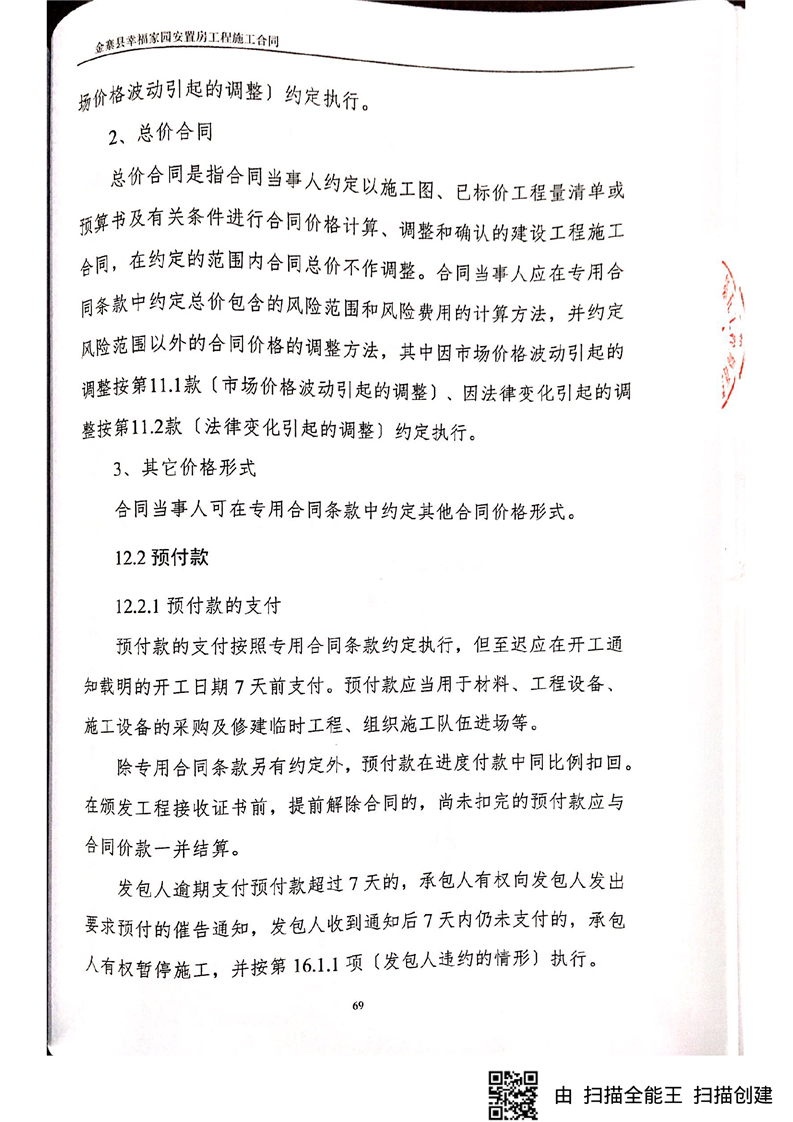 金寨县幸福家园安置房工程施工合同
场价格波动引起的调整〕约定执行。
2、总价合同
总价合同是指合同当事人约定以施工图、已标价工程量清单或
预算书及有关条件进行合同价格计算、调整和确认的建设工程施工
合同，在约定的范围内合同总价不作调整。合同当事人应在专用合
同条款中约定总价包含的风险范围和风险费用的计算方法，并约定
风险范围以外的合同价格的调整方法，其中因市场价格波动引起的
调整按第11.1款〔市场价格波动引起的调整〕、因法律变化引起的调
整按第11.2款〔法律变化引起的调整〕约定执行。
3、其它价格形式
合同当事人可在专用合同条款中约定其他合同价格形式。
12.2 预付款
12.2.1 预付款的支付
预付款的支付按照专用合同条款约定执行，但至迟应在开工通
知载明的开工日期 7 天前支付。预付款应当用于材料、工程设备、
施工设备的采购及修建临时工程、组织施工队伍进场等。
除专用合同条款另有约定外，预付款在进度付款中同比例扣回。
在颁发工程接收证书前，提前解除合同的，尚未扣完的预付款应与
合同价款一并结算。
发包人逾期支付预付款超过 7 天的，承包人有权向发包人发出
要求预付的催告通知，发包人收到通知后 7 天内仍未支付的，承包
人有权暂停施工，并按第 16.1.1 项〔发包人违约的情形〕执行。
69
由 扫描全能王 扫描创建